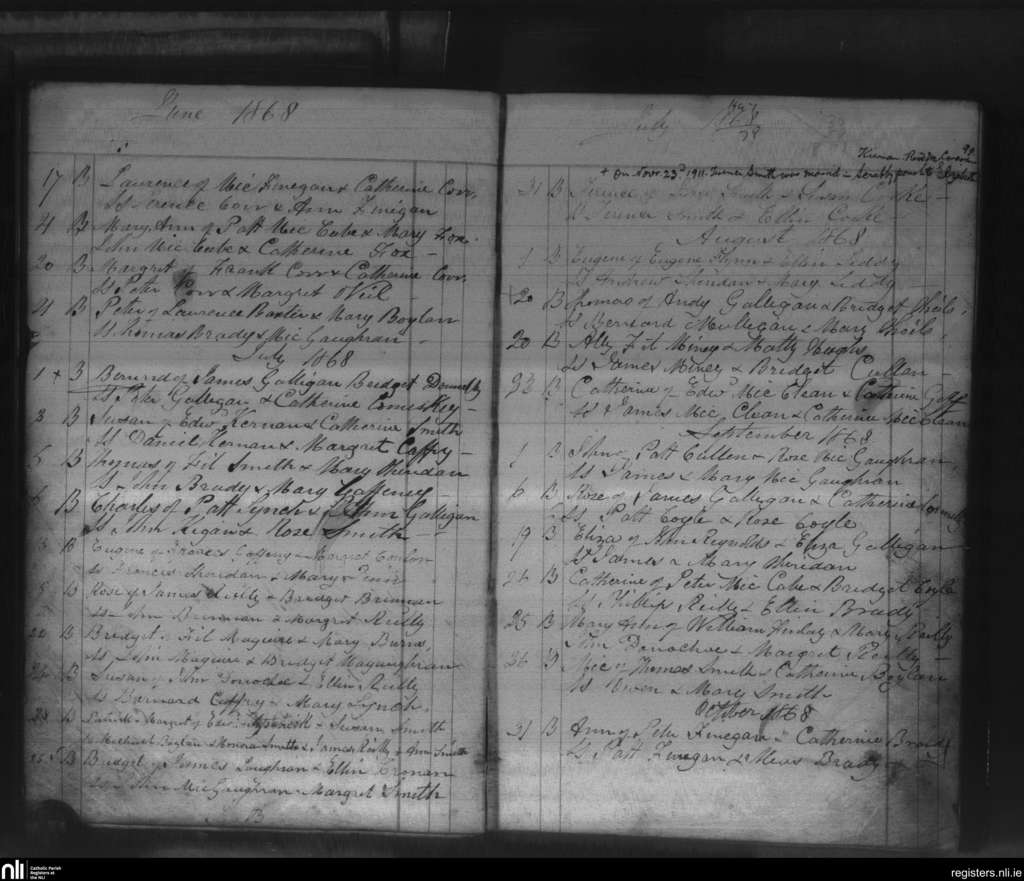 June 1868
17 B Laurence of Mic Finegan & Catherine Corr,
Ss Terence Corr & Ann Finegan
4 B Mary Ann of Patt Mic Cabe & Mary Fox
John Mic Cabe & Catherine Fox
20 B Margret of Frank Corr & Catherine Corr,
Ss Peter Corr & Margret
4 B Peter of Laurence & Mary Boylan
Ss Thomas Brady & Mic Gaughran
July 1868
1 + B Bernnd of James Galligan Bridget
Ss Peter Galligan & Catherine Comiskey
3 B Susan of Edwd Kernan & Catherine Smith
Ss Daniel Kernan & Margret Caffry
5 B Thomas of Fil Smith & Mary Sheridan
Ss John Brady & Mary Gaffeney
6 B Charles of Patt Lynch & Ann Galligan
Ss John Kegan & Rose Smith
B Eugene of Gaffeny & Margret Conlon
Ss Francis Sheridan & Mary
B Rose of James Reilly & Bridget Brennan
Ss John Brennan & Margret Reilly
20 B Bridget of Fil Maguire & Mary Burns,
Ss John Maguire & Bridget Magaughran
B Susan of John Donochoe & Ellen Reilly
Ss Barnard Caffry & Mary Lynch
B & Margret of Edwd & Susan Smith
Ss Michael Boylan & Smith & James Reilly & Ann Smith
B Bridget of James Gaughran & Ellen Cronan
Ss John Mic Gaughran Margret Smith
B
July 1868
+ On Novr 23rd 1911 Terence Smith was married
31 B Terence of Smith & Susan
Ss Terence Smith & Ellen
August 1868
1 B Eugene of Eugene Flynn & Ellen Leddy
Ss Andrew Sheridan & Mary Leddy
20 B Thomas of Andy Gallegan & Bridget Sheils
Ss Bernard Mulligan & Mary Sheils
20 B Ally Fil Miney & Matty Hughs
Ss James Miney & Bridget Cullen
23 B Catherine of Edwd Mic Clean & Catherine Goff
Ss James Mic Clean & Catherine Mic Clean
September 1868
1 B John Patt Cullen & Rose Mic Gaughran,
Ss James & Mary Mic Gaughran
6 B Rose of James Galligan & Catherine
Ss Patt Coyle & Rose Coyle
9 B Eliza of John Reynolds & Eliza Galligan
Ss James & Mary Sheridan
B Catherine of Peter Mic Cabe & Bridget
Ss Phillip Reilly & Ellen Brady
25 B Mary Ann of William Finlay & Mary Reilly
John Donochoe & Margret Reilly
26 B Mic of Thomas Smith & Catherine Boylan
Ss Owen & Mary Smith
October 1868
31 B Ann of Peter Finegan & Catherine Brady
Ss Patt Finegan & Brady
nli
Catholic Parish
Registers at
the NLI
registers.nli.ie